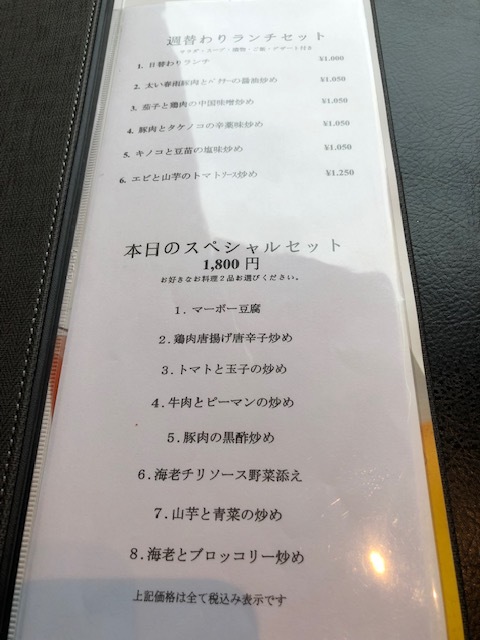 週替わりランチセット
サラダ・スープ・漬物・ご飯・デザート付き
1. 日替わりランチ ¥1.000
2. 太い春雨豚肉とﾊﾞｸﾃｰの醤油炒め ¥1.050
3. 茄子と鶏肉の中国味噌炒め ¥1.050
4. 豚肉とタケノコの辛薬味炒め ¥1.050
5. キノコと豆苗の塩味炒め ¥1.050
6. エビと山芋のトマトｿｰｽ炒め ¥1.250
本日のスペシャルセット
1,800 円
お好きなお料理２品お選びください。
１. マーボー豆腐
２.鶏肉唐揚げ唐辛子炒め
３.トマトと玉子の炒め
４.牛肉とピーマンの炒め
５.豚肉の黒酢炒め
６.海老チリソース野菜添え
７.山芋と青菜の炒め
８.海老とブロッコリー炒め
上記価格は全て税込み表示です